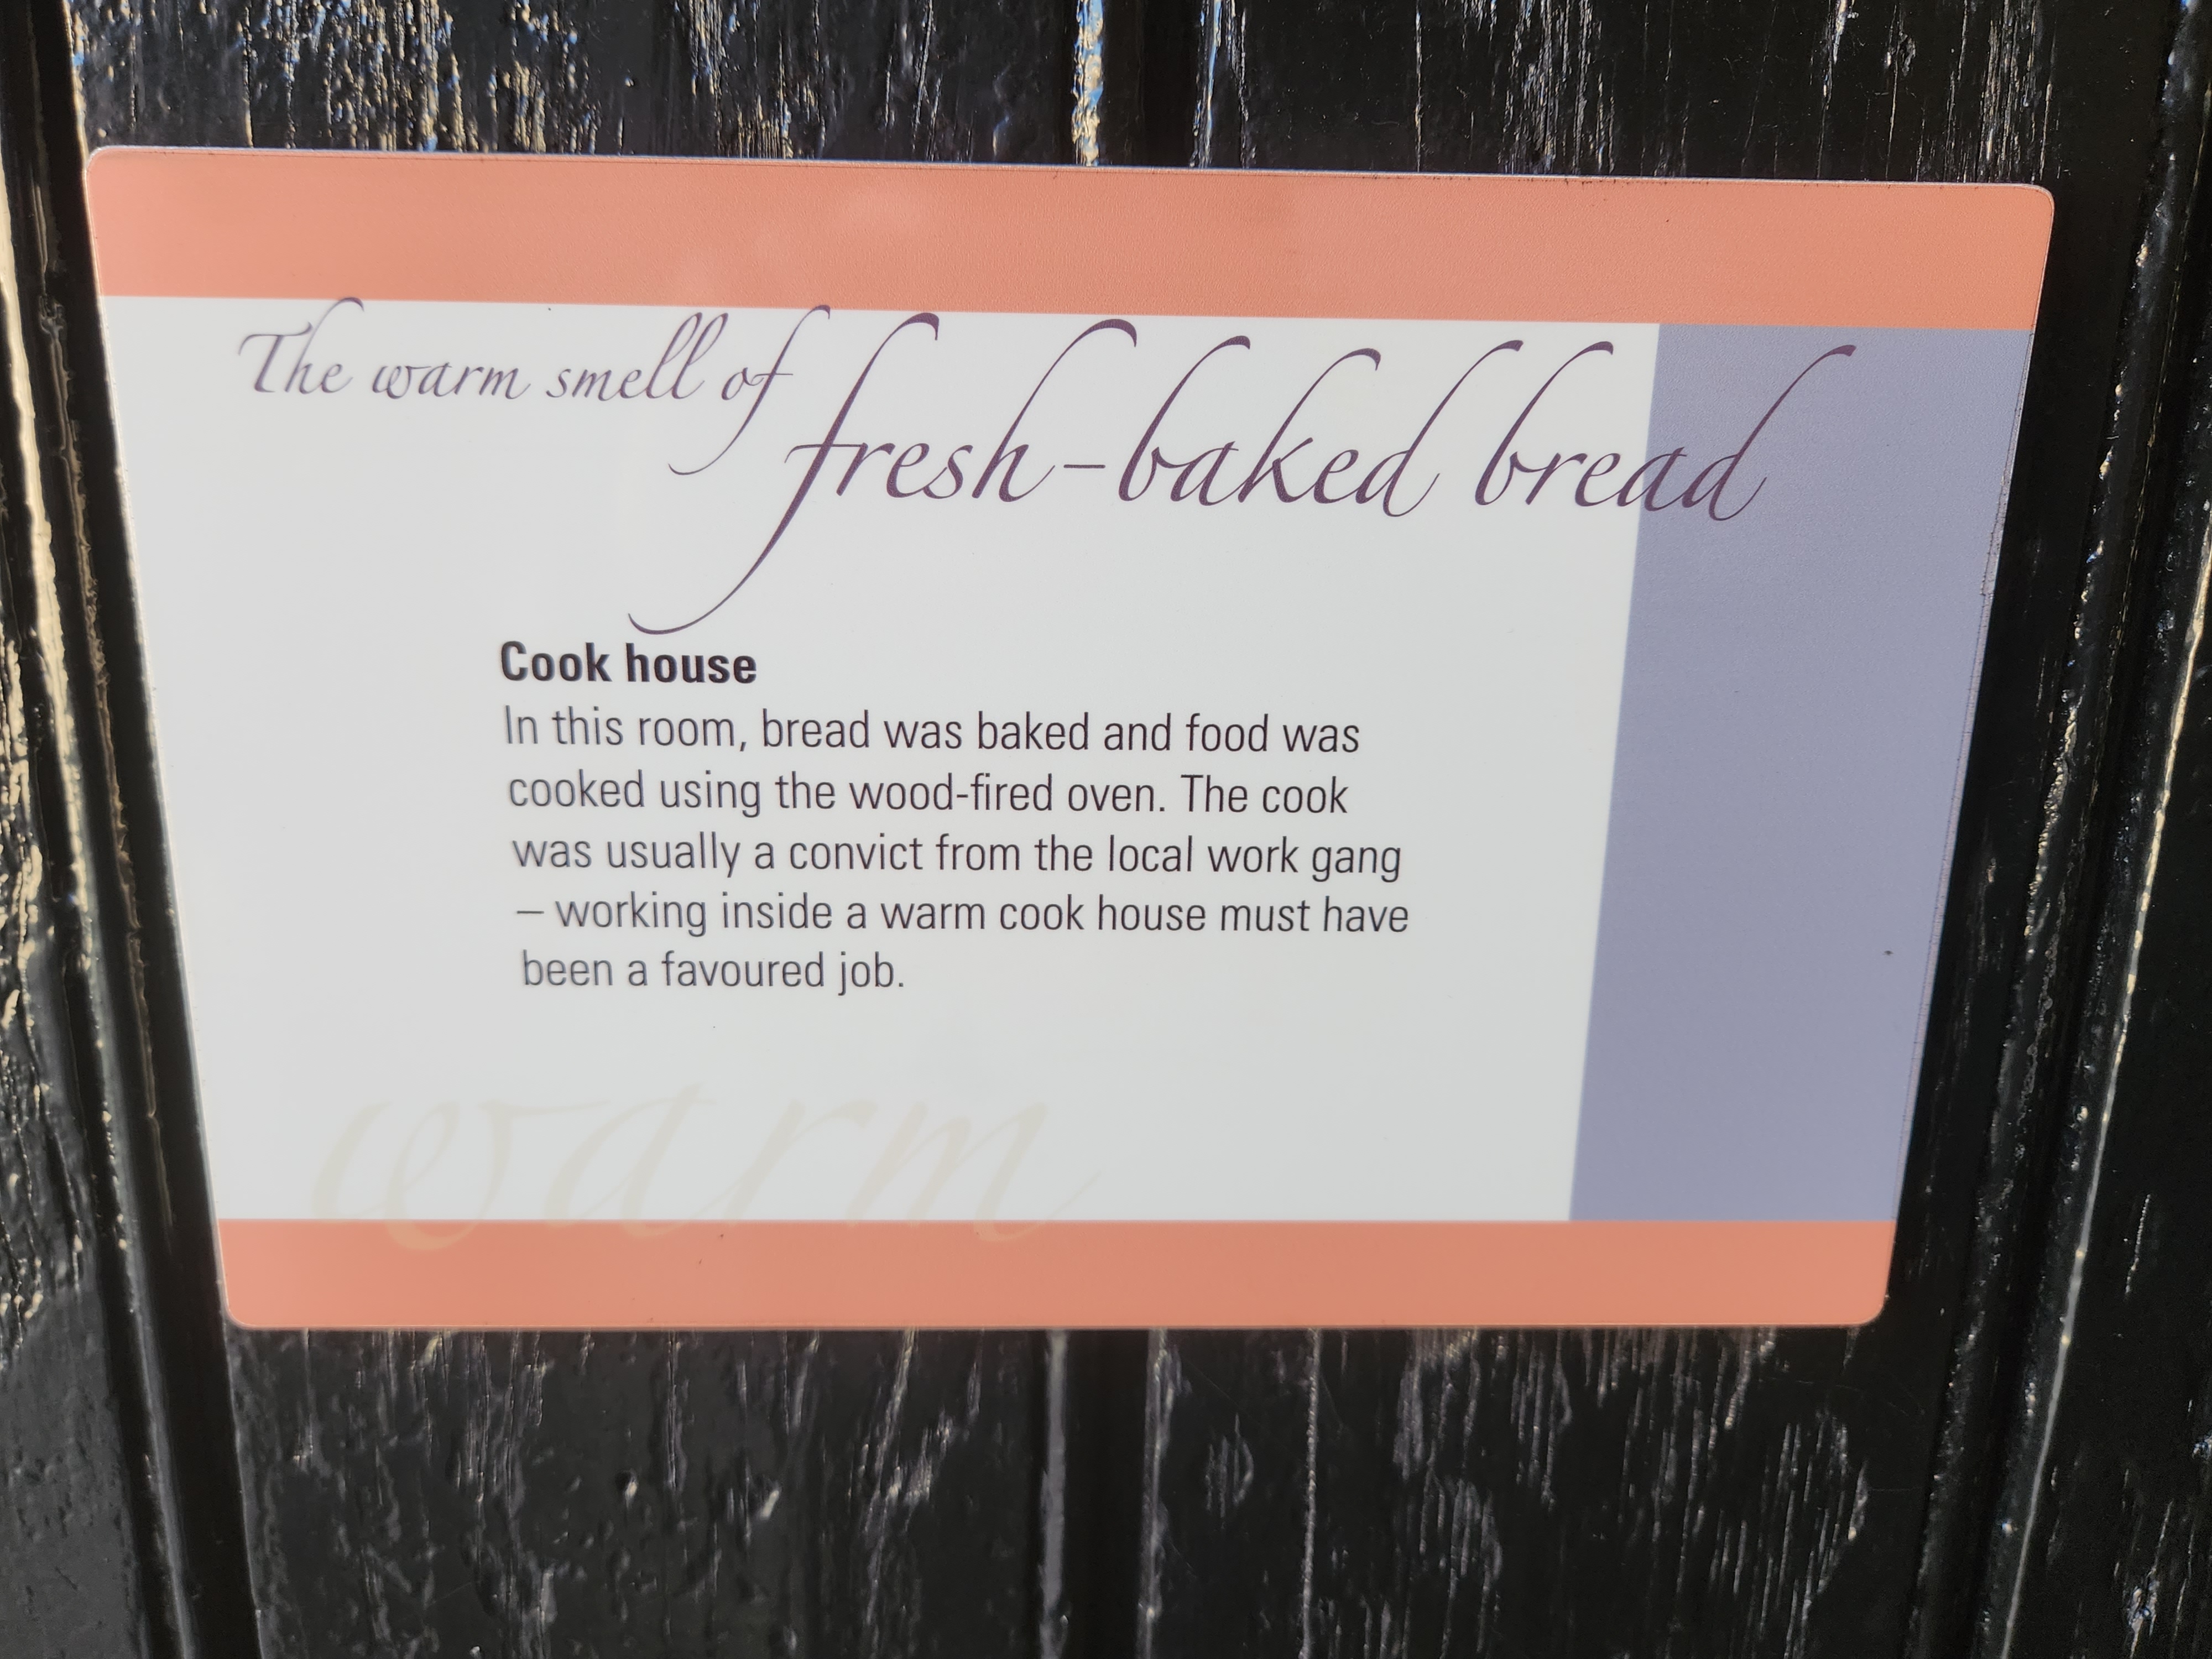 The warm smell of
fresh-baked bread
Cook house
In this room, bread was baked and food was
cooked using the wood-fired oven. The cook
was usually a convict from the local work gang
– working inside a warm cook house must have
been a favoured job.
warm